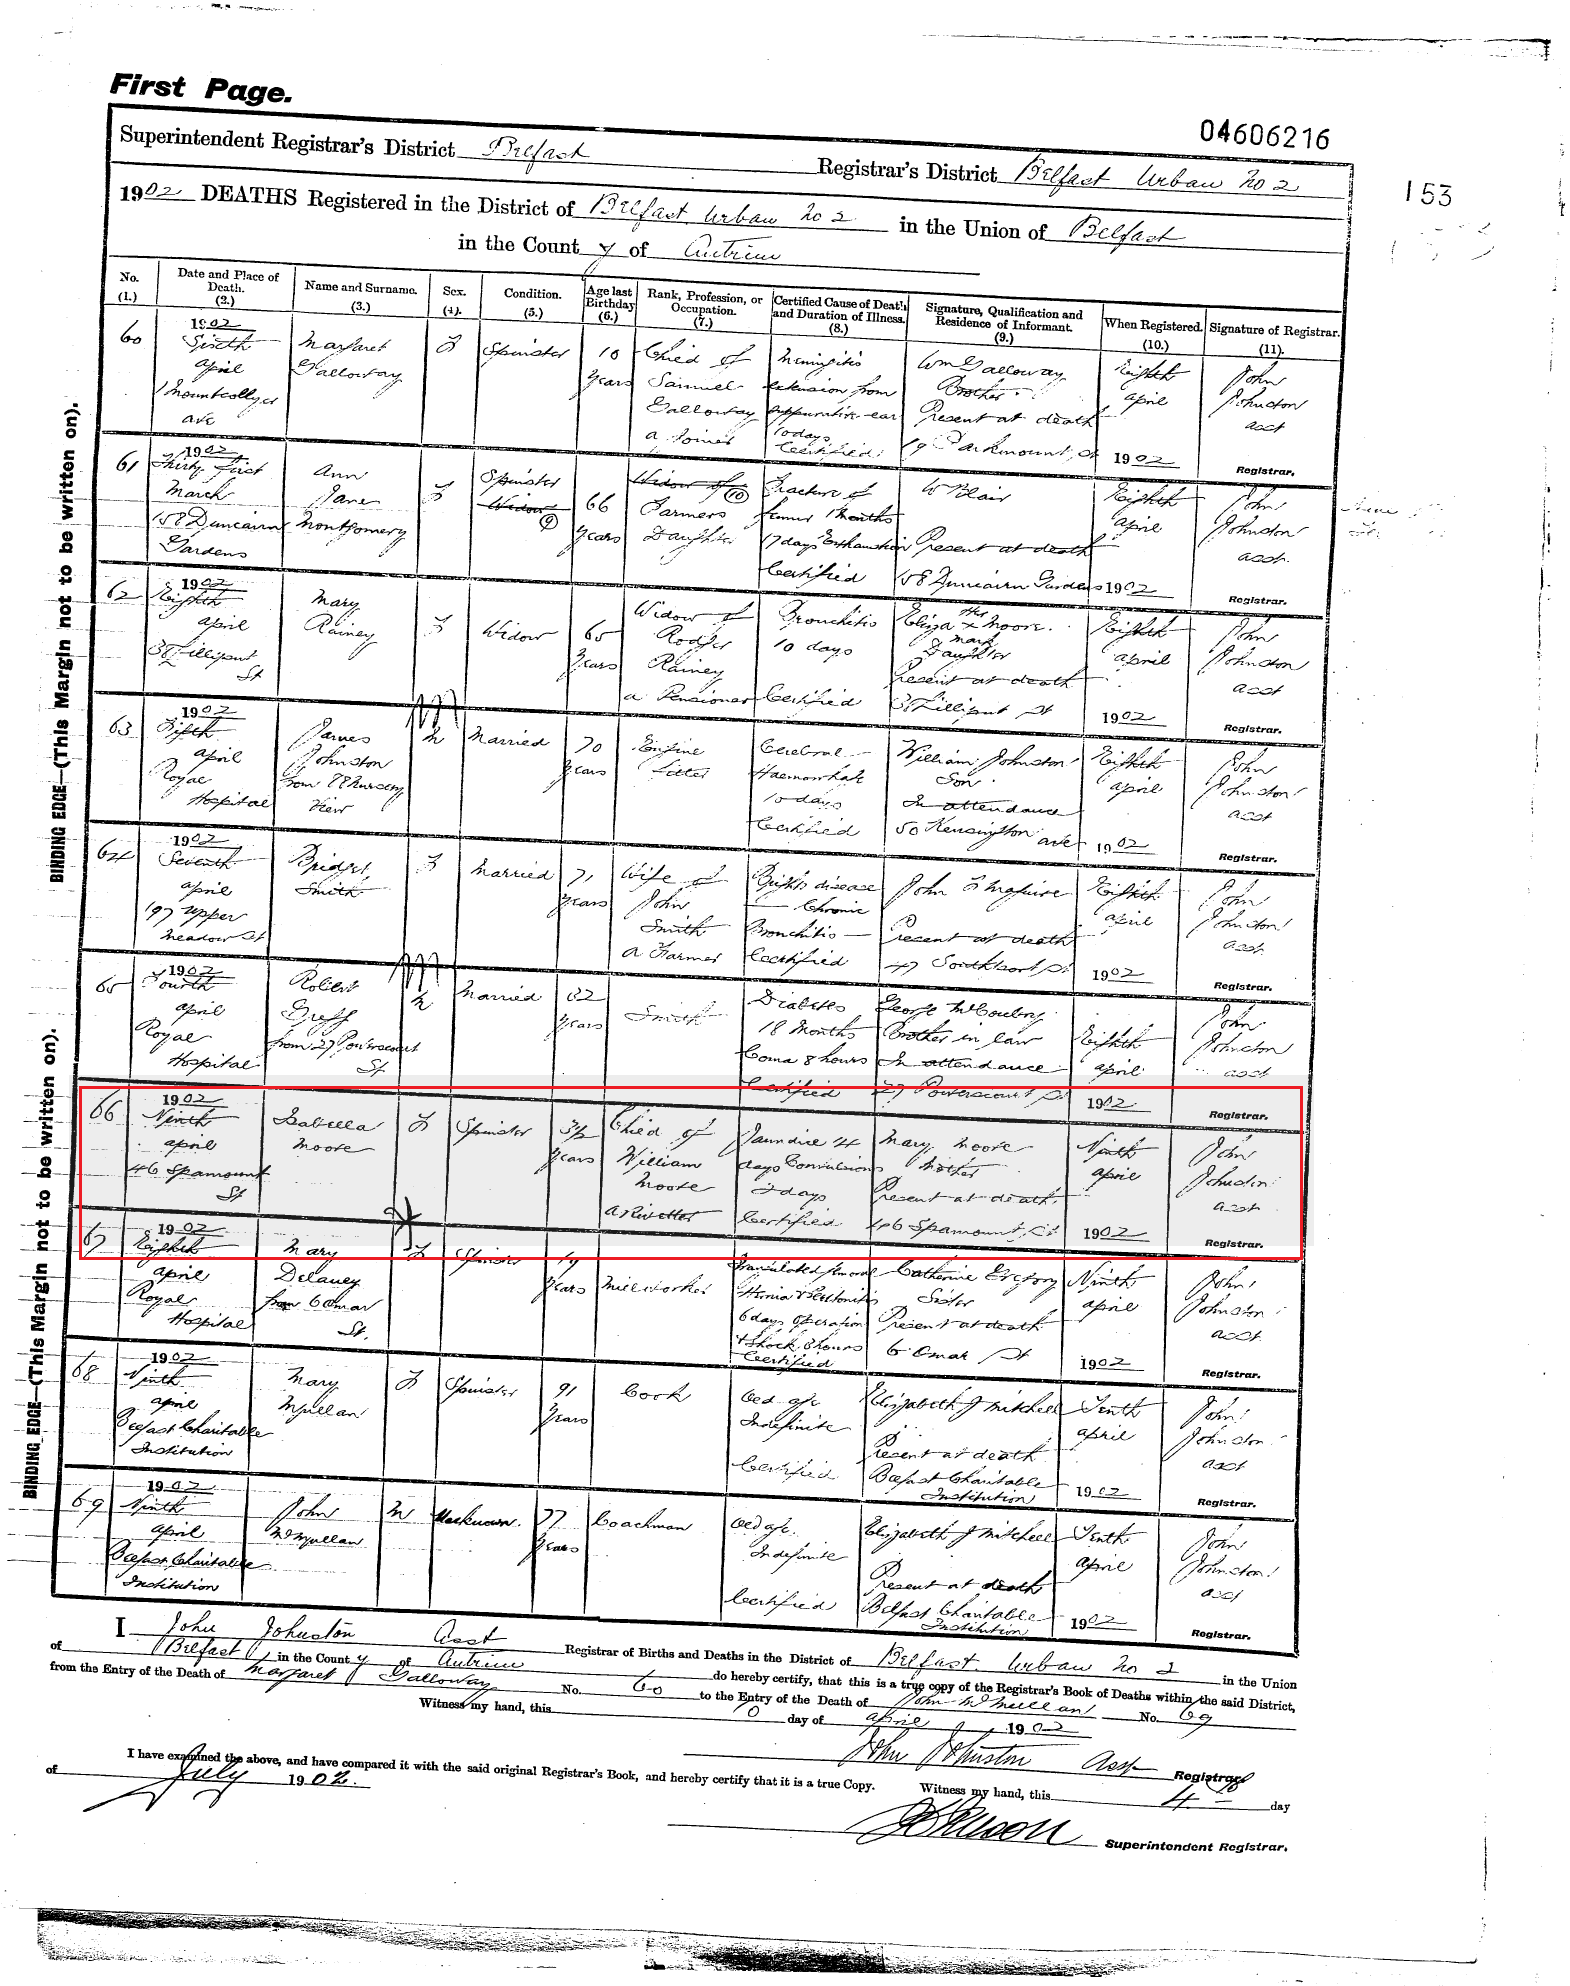 First Page.
04606216
Superintendent Registrar's District Belfast Registrar's District Belfast Urban No 2
153
1902 DEATHS Registered in the District of Belfast Urban No 2 in the Union of Belfast
in the County of Antrim
BINDING EDGE—(This Margin not to be written on).
BINDING EDGE—(This Margin not to be written on).
No. (1.) Date and Place of Death. (2.) Name and Surname. (3.) Sex. (4). Condition. (5.) Age last Birthday (6.) Rank, Profession, or Occupation. (7.) Certified Cause of Death and Duration of Illness. (8.) Signature, Qualification and Residence of Informant. (9.) When Registered. (10.) Signature of Registrar. (11).
60 1902 Sixth April Mountcollyer Ave Margaret Galloway F Spinster 10 Years Child of Samuel Galloway a Joiner Meningitis extension from suppurative ear 10 days Certified Wm Galloway Brother Present at death 19 Parkmount St Eighth April 1902 John Johnston Asst Registrar.
61 1902 Thirty first March 58 Duncairn Gardens Ann Jane Montgomery F Spinster Widow (9) 66 Years Widow of (10) Farmers Daughter Fracture of femur 1 Months 17 days Exhaustion Certified W Blair Present at death 58 Duncairn Gardens Eighth April 1902 John Johnston Asst. Registrar.
62 1902 Eighth April 38 Lilliput St Mary Rainey F Widow 65 Years Widow of Rodger Rainey a Pensioner Bronchitis 10 days Certified Eliza her X mark Moore Daughter Present at death Lilliput St Eighth April 1902 John Johnston Asst Registrar.
63 1902 Fifth April Royal Hospital James Johnston from 78 Nursery View M Married 70 Years Engine fitter Cerebral Haemorrhage 10 days Certified William Johnston Son In attendance 50 Kensington Ave Eighth April 1902 John Johnston Asst Registrar.
64 1902 Seventh April 197 Upper Meadow St Bridget Smith F Married 71 Years Wife of John Smith a Farmer Brights disease Chronic Bronchitis Certified John F Maguire Present at death 47 Southport St Eighth April 1902 John Johnston Asst Registrar.
65 1902 Fourth April Royal Hospital Robert Gregg from 27 Powerscourt St M Married 32 Years Smith Diabetes 18 Months Coma 8 hours Certified George McCoubry Brother in law In attendance 27 Powerscourt St Eighth April 1902 John Johnston Asst Registrar.
66 1902 Ninth April 46 Spamount St Isabella Moore F Spinster 3½ Years Child of William Moore a Rivetter Jaundice 4 days Convulsions 2 days Certified Mary Moore Mother Present at death 46 Spamount St Ninth April 1902 John Johnston Asst Registrar.
67 1902 Eighth April Royal Hospital Mary Delaney from 6 Omar St. F Spinster 49 Years Millworker Strangulated femoral Hernia Peritonitis 6 days operation + Shock 8 hours Certified Catherine Gregory Sister Present at death 6 Omar St Ninth April 1902 John Johnston Asst Registrar.
68 1902 Ninth April Belfast Charitable Institution Mary Mullan F Spinster 91 Years Cook Old age Indefinite Certified Elizabeth J Mitchell Present at death Belfast Charitable Institution Tenth April 1902 John Johnston Asst Registrar.
69 1902 Ninth April Belfast Charitable Institution John McMullan M Unknown. 77 Years Coachman Old age. Indefinite Certified Elizabeth J Mitchell Present at death Belfast Charitable Institution Tenth April 1902 John Johnston Asst Registrar.
I John Johnston Asst Registrar of Births and Deaths in the District of Belfast Urban No 2 in the Union
of Belfast in the County of Antrim do hereby certify, that this is a true copy of the Registrar's Book of Deaths within the said District,
from the Entry of the Death of Margaret Galloway No. 60 to the Entry of the Death of John McMullan No. 69
Witness my hand, this 10 day of April 1902
John Johnston Asst Registrar
I have examined the above, and have compared it with the said original Registrar's Book, and hereby certify that it is a true Copy. Witness my hand, this 4th day
of July 1902.
Superintendent Registrar.